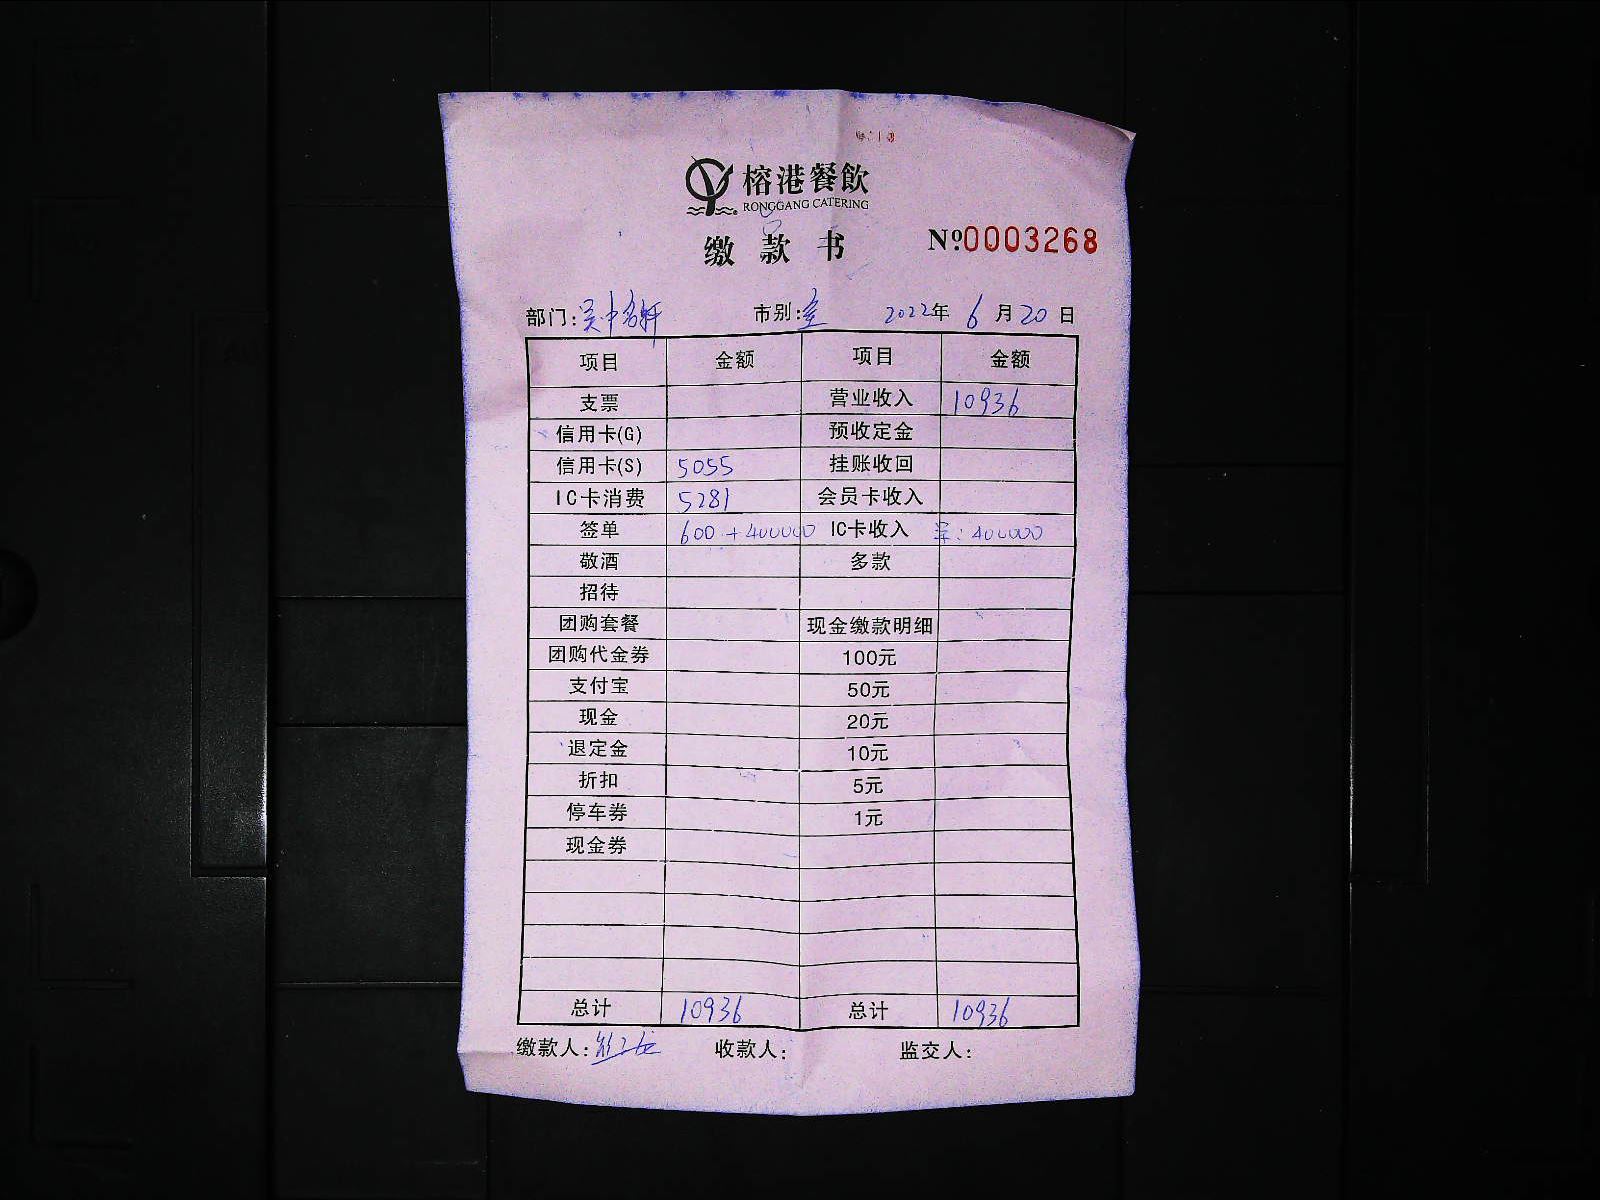 榕港餐飲
RONGGANG CATERING
缴款书 №0003268
部门: 吴中名轩 市别: 2022年6月20日
项目 金额 项目 金额
支票 营业收入 10936
信用卡(G) 预收定金
信用卡(S) 5055 挂账收回
IC卡消费 5281 会员卡收入
签单 600+400000 IC卡收入 400000
敬酒 多款
招待
团购套餐 现金缴款明细
团购代金券 100元
支付宝 50元
现金 20元
退定金 10元
折扣 5元
停车券 1元
现金券
总计 10936 总计 10936
缴款人: 收款人: 监交人: